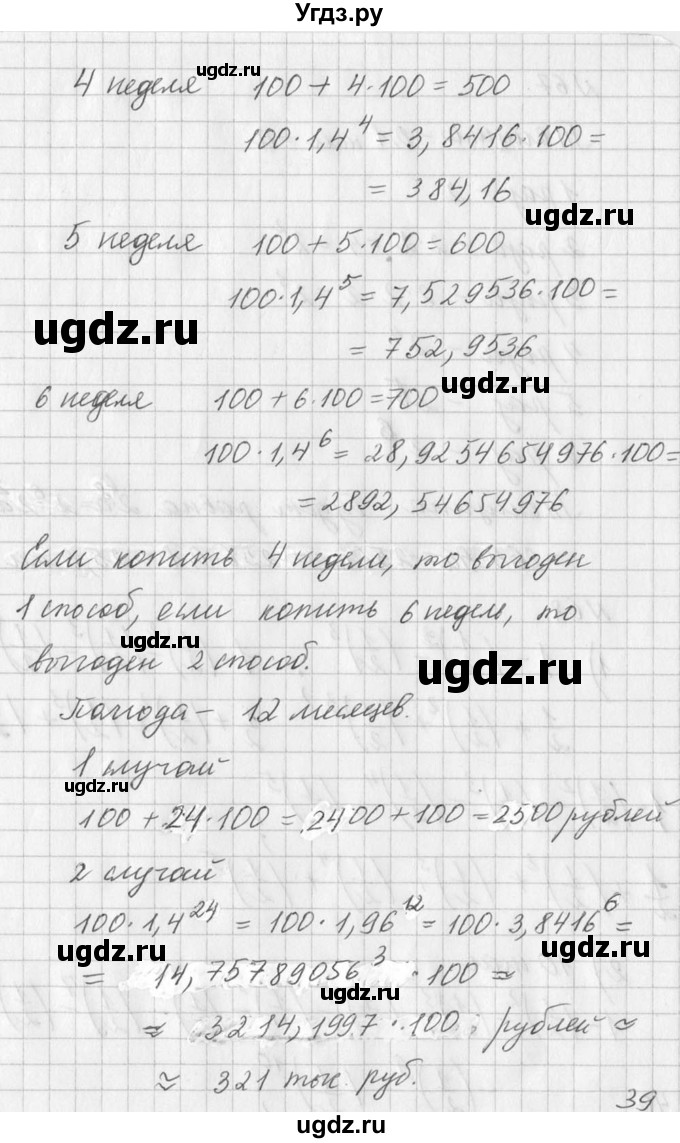 Угдз.ру
4 неделя 100 + 4·100 = 500
ugdz.ru
100·1,4⁴ = 3,8416·100 =
= 384,16
ugdz.ru
5 неделя 100 + 5·100 = 600
100·1,4⁵ = 7,529536·100 =
ugdz.ru
= 752,9536
ugdz.ru
6 неделя 100 + 6·100 = 700
100·1,4⁶ = 28,9254654976·100 =
= 2892,54654976
Если копить 4 недели, то выгоден
1 способ, если копить 6 недель, то
ugdz.ru
выгоден 2 способ.
ugdz.ru
Полгода – 12 месяцев.
1 случай
ugdz.ru
100 + 24·100 = 2400 + 100 = 2500 рублей
2 случай
100·1,4²⁴ = 100·1,96¹² = 100·3,8416⁶ =
ugdz.ru ugdz.ru
= 14,75789056³ ·100 ≈
ugdz.ru
≈ 3214,1997·100 ; рублей ≈
≈ 321 тыс. руб.
39
ugdz.ru